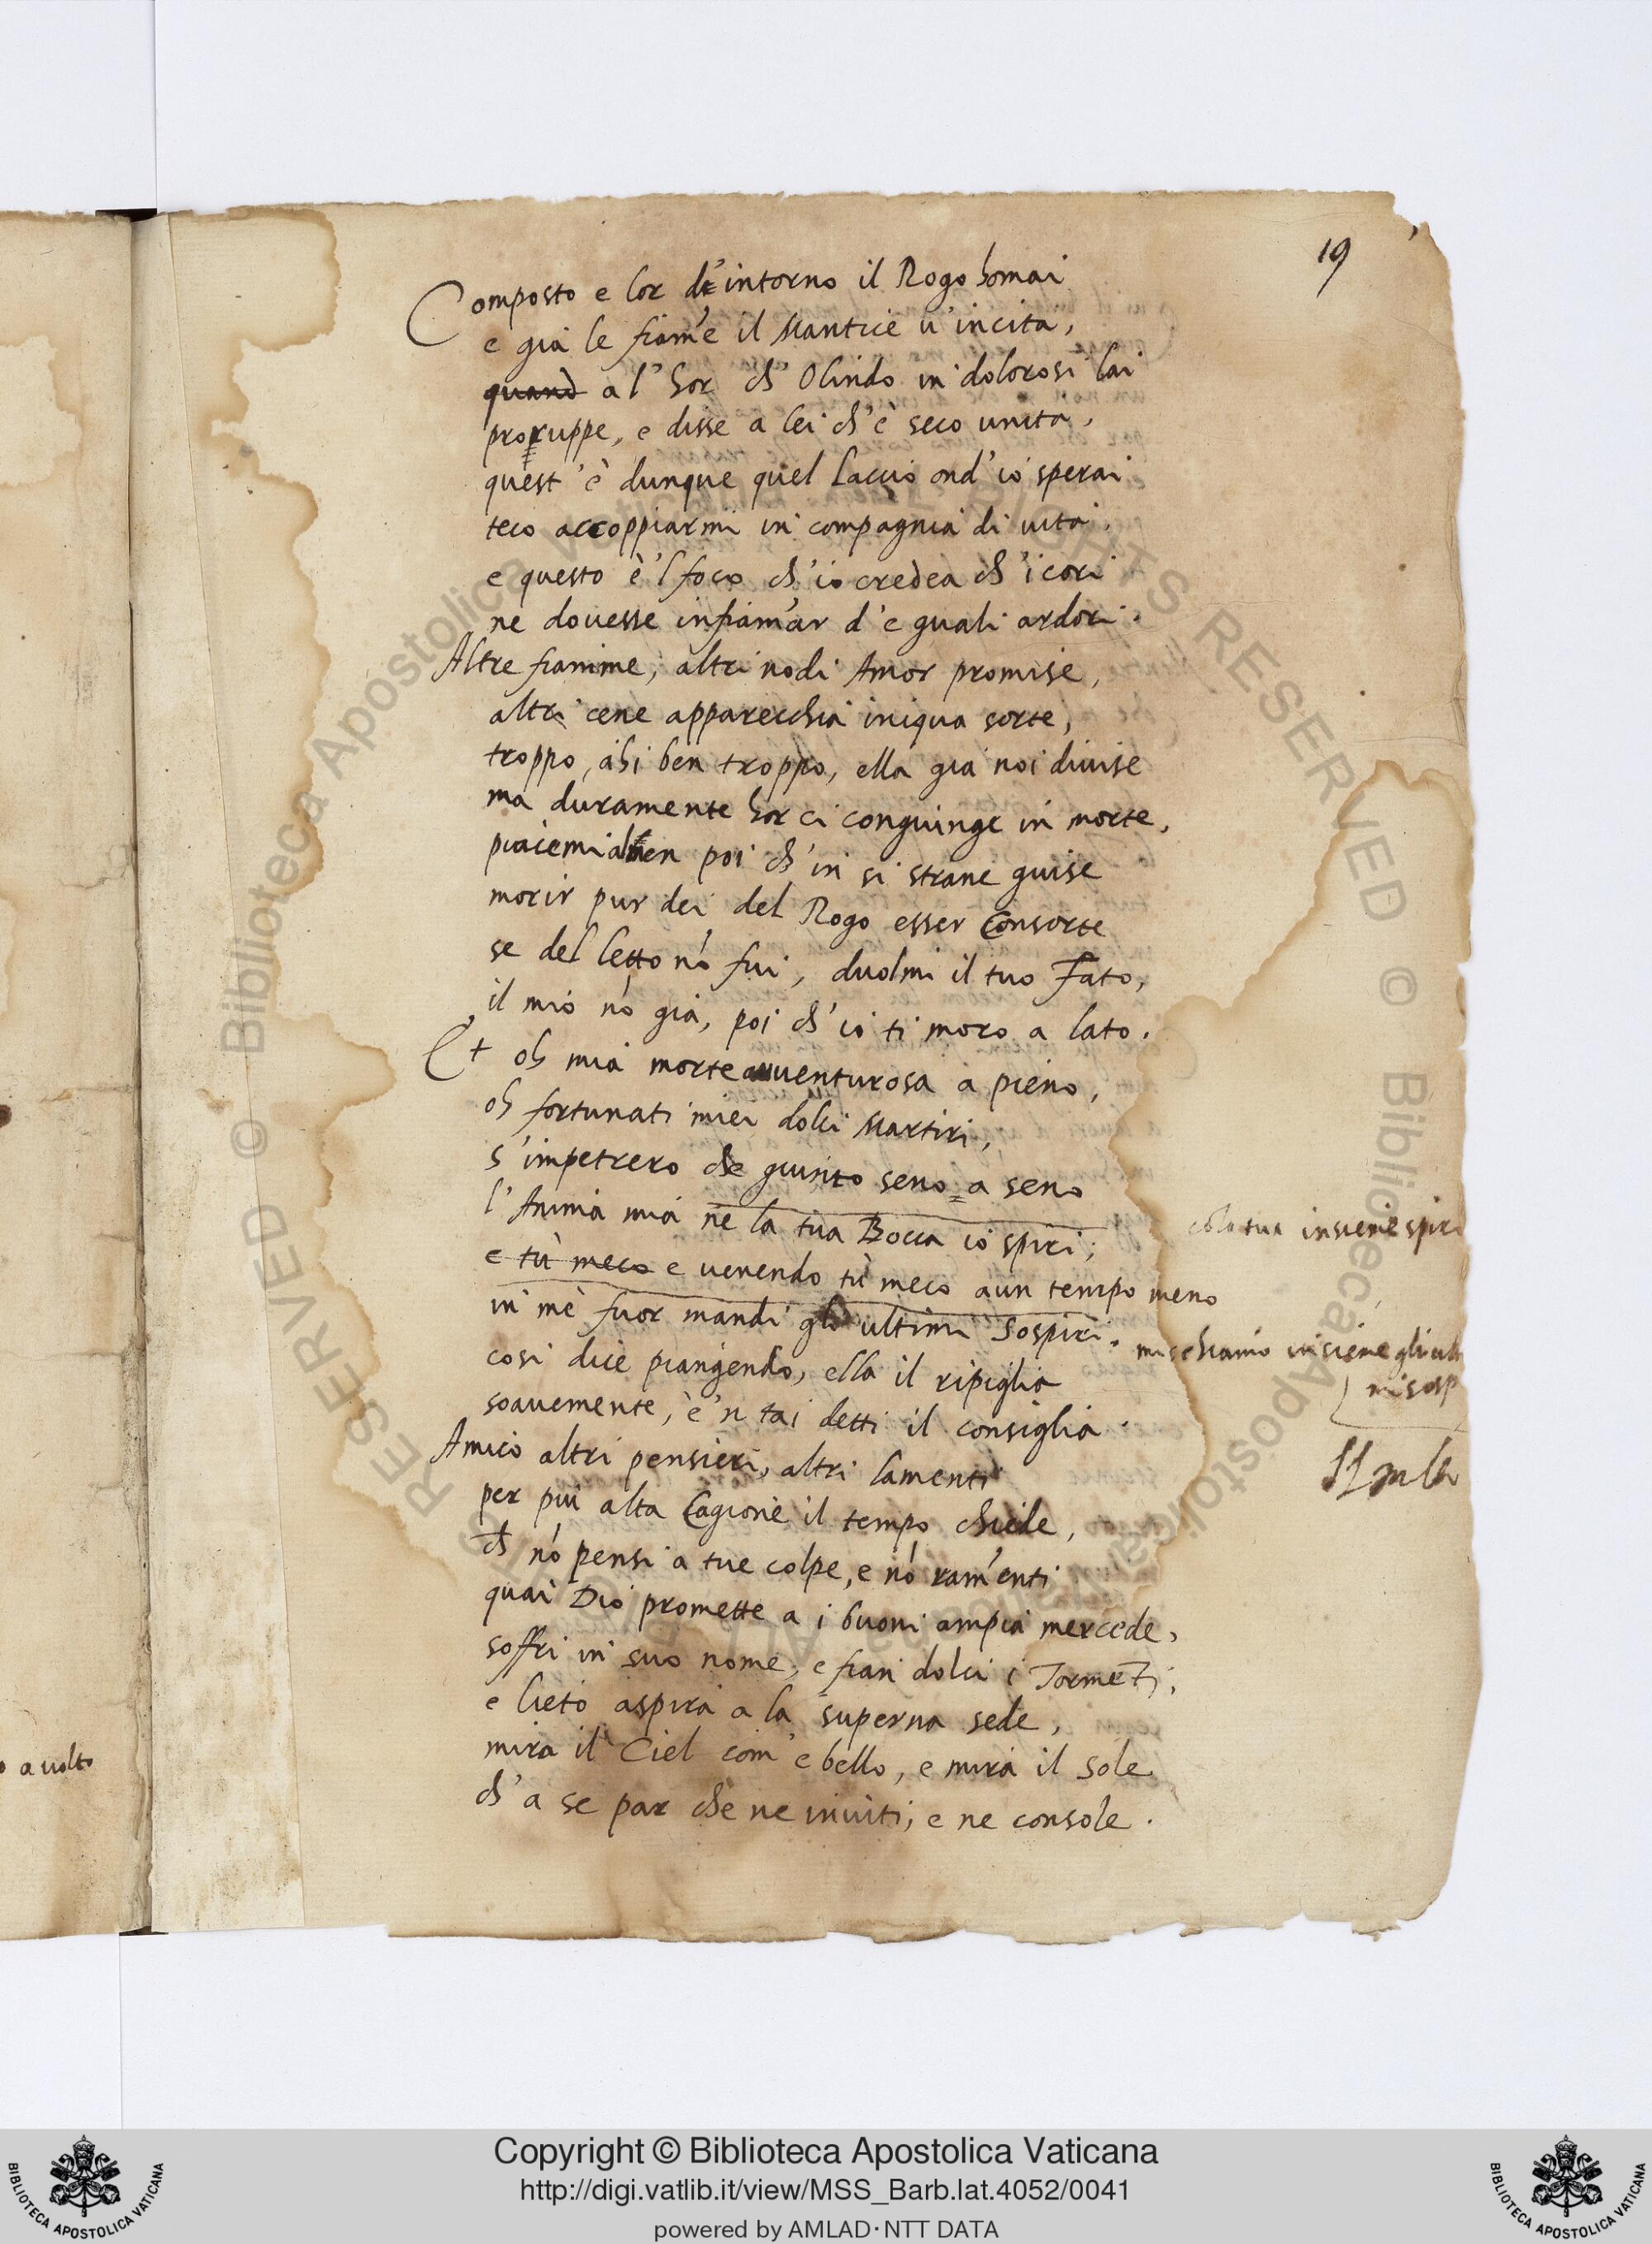 19
Composto e lor d'intorno il Rogo homai
e già le fiam̃e il Mantice u'incita,
quand al'hor ch'Olindo in dolorosi lai
proruppe, e disse a lei ch'è seco unita,
quest'è dunque quel laccio ond'io sperai
teco accoppiarmi in compagnia di uita,
e questo è'l foco ch'io credea ch'i cori
ne douesse infiam̃ar d'eguali ardori.
Altre fiamme, altri nodi Amor promise,
altri cene apparecchia iniqua sorte,
troppo, ahi ben troppo, ella gia noi diuise
ma duramente hor ci congiunge in morte,
piacemi almen poi ch'in si strane guise
morir pur dei del Rogo esser Consorte
se del letto nó fui, duolmi il tuo Fato,
il mio nó già, poi ch'io ti moro a lato.
Et oh mia morte auuenturosa a pieno,
oh fortunati miei dolci Martiri,
s'impetrero che giunto seno a seno
l'Anima mia ne la tua Bocca io spiri;
cola tua insieme spiri
e tù meco e uenendo tù meco a un tempo meno
in mè fuor mandi gli ultimi Sospiri.
mischiamo insieme gli ulti
mi sosp
cosi dice piangendo, ella il ripiglia
soauemente, è'n tai detti il consiglia.
Amico altri pensieri, altri lamenti
per più alta Cagione il tempo chiede,
ch nó pensi a tue colpe, e nó ram̃enti
quai Dio promette a i buoni ampia mercede,
soffri in suo nome, e fian dolci i Tormẽti,
e lieto aspira a la superna sede,
mira il Ciel com'e bello, e mira il Sole
ch'a se par che ne inuiti, e ne console.
o a uolto
RESERVED © Biblioteca Apostolica Vaticana ALL RIGHTS RESERVED © Biblioteca Apostolica Vaticana ALL RIGHTS
BIBLIOTECA APOSTOLICA VATICANA
Copyright © Biblioteca Apostolica Vaticana
http://digi.vatlib.it/view/MSS_Barb.lat.4052/0041
powered by AMLAD·NTT DATA
BIBLIOTECA APOSTOLICA VATICANA